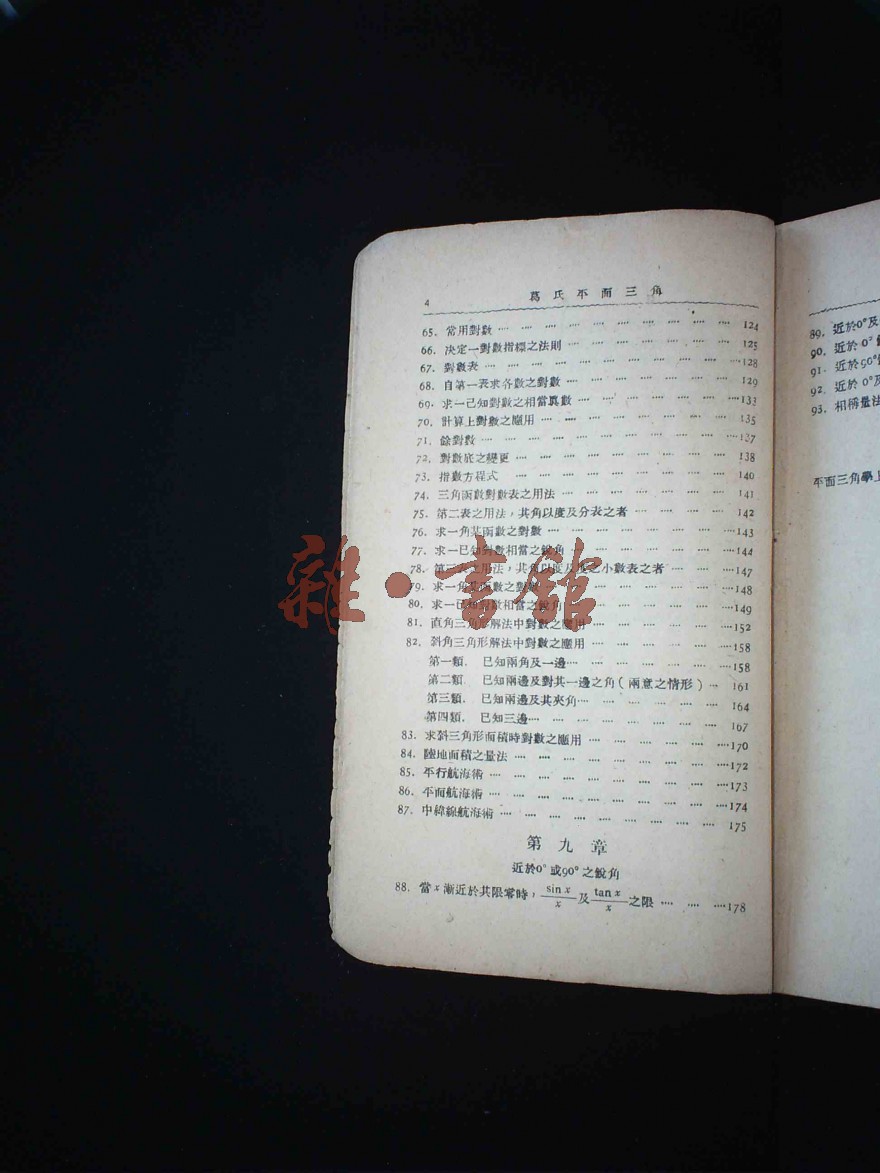 4 葛氏平面三角
65. 常用對數 124
66. 決定一對數指標之法則 125
67. 對數表 128
68. 自第一表求各數之對數 129
69. 求一已知對數之相當眞數 133
70. 計算上對數之應用 135
71. 餘對數 137
72. 對數底之變更 138
73. 指數方程式 140
74. 三角函數對數表之用法 141
75. 第二表之用法，其角以度及分表之者 142
76. 求一角某函數之對數 143
77. 求一已知對數相當之銳角 144
78. 第三表之用法，其角以度及度之小數表之者 147
79. 求一角某函數之對數 148
80. 求一已知對數相當之銳角 149
81. 直角三角形解法中對數之應用 152
82. 斜角三角形解法中對數之應用 158
第一類. 已知兩角及一邊 158
第二類. 已知兩邊及對其一邊之角（兩意之情形） 161
第三類. 已知兩邊及其夾角 164
第四類. 已知三邊 167
83. 求斜三角形面積時對數之應用 170
84. 陸地面積之量法 172
85. 平行航海術 173
86. 平面航海術 174
87. 中緯線航海術 175
第九章
近於0°或90°之銳角
88. 當x漸近於其限零時，sin x/x 及 tan x/x 之限 178
89. 近於0°及
90. 近於0°
91. 近於90°
92. 近於0°及
93. 相稱量法
平面三角學上
雜·書館